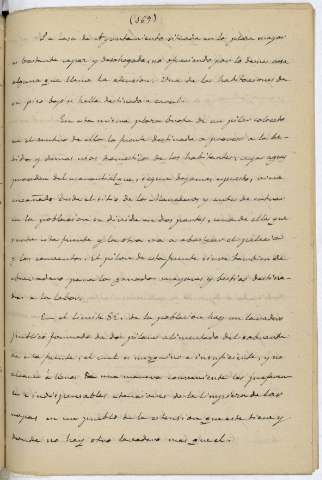 (369)
La casa de Ayuntamiento situada en la plaza mayor
es bastante capaz y desahogada, no ofreciendo por lo demas cosa
alguna que llame la atencion. Una de las habitaciones de
su piso bajo se halla destinada a carcel.
En esta misma plaza brota de un pilar colocado
en el centro de ella la fuente destinada a proveer a la be-
bida y demas usos domesticos de los habitantes; cuyas aguas
proceden del manantial que, segun dejamos espuesto, viene
encañado desde el sitio de los y antes de entrar
en la poblacion se divide en dos partes, una de ellas que
surte esta fuente y la otra va a abastecer el palacio
y los conventos. El pilar de esta fuente sirve tambien de
abrevadero para los ganados mayores y bestias destina-
das a la labor.
En el limite SE. de la poblacion hay un lavadero
publico formado de dos pilares alimentado del sobrante
de esta fuente; el cual es mezquino e insuficiente, y no
alcanza a llenar de una manera conveniente las
e indispensables atenciones de la limpieza de las
ropas en un pueblo de la estension que este tiene y
donde no hay otro lavadero mas que el.